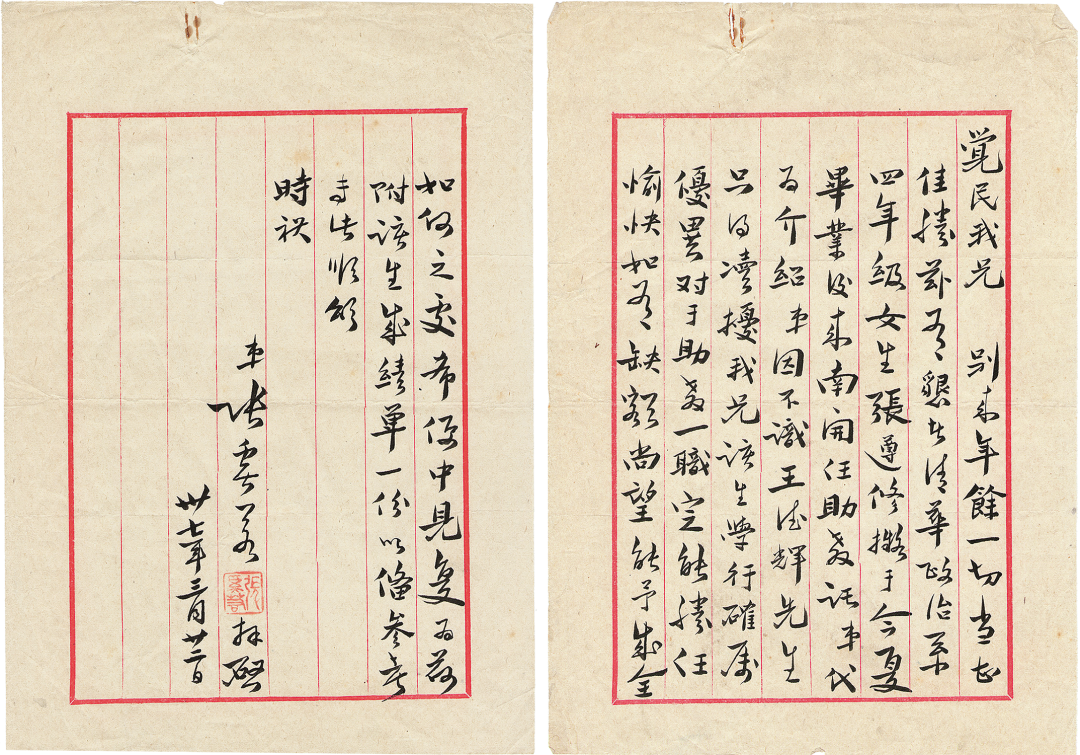 覺民我兄 别来年餘一切当甚
佳勝茲有懇者清華政治系
四年級女生張遵修擬于今夏
畢業後来南開任助教託弟代
为介紹弟因不識王德輝先生
只得瀆擾我兄該生學行確属
優異对于助教一職定能勝任
愉快如有缺額尚望能予成全
如何之處希便中見复为荷
附該生成績單一份以備參考
专此順頌
時祺
弟張奚若 拜啓
卅七年三月廿二日